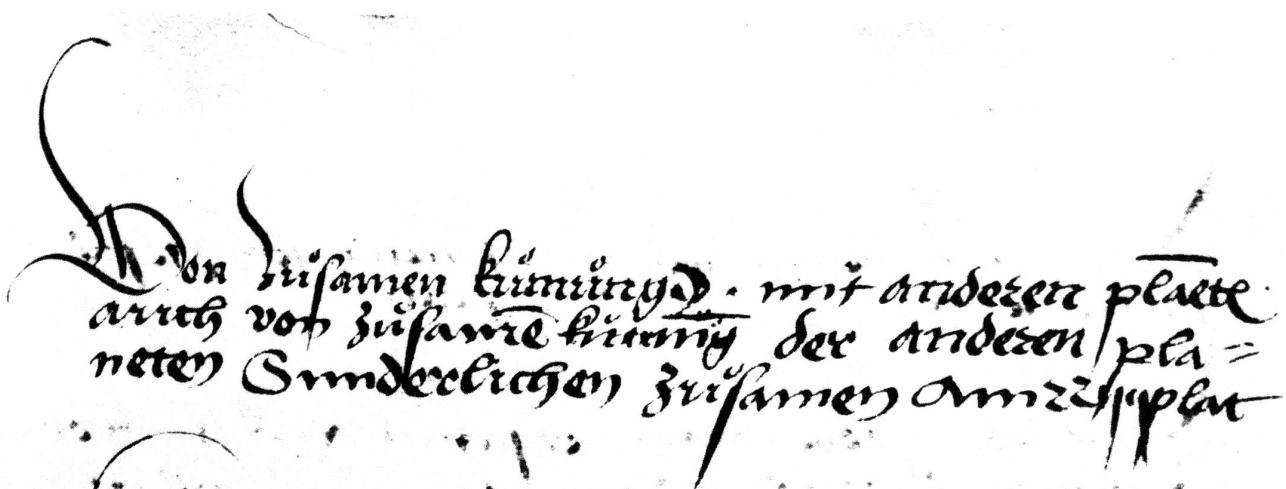 Von zůsamen kůmůng ☽ · mit anderen plaēte
auch von zůsamē kůmūg der anderen pla=
neten Sunderlichen zůsamen Am plat